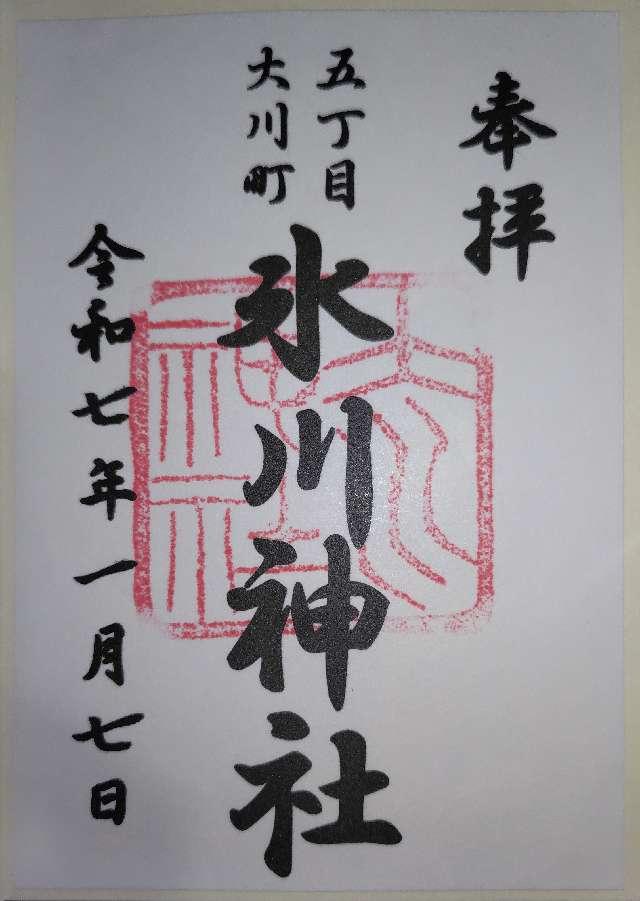 奉拝
五丁目
大川町
氷川神社
令和七年一月七日